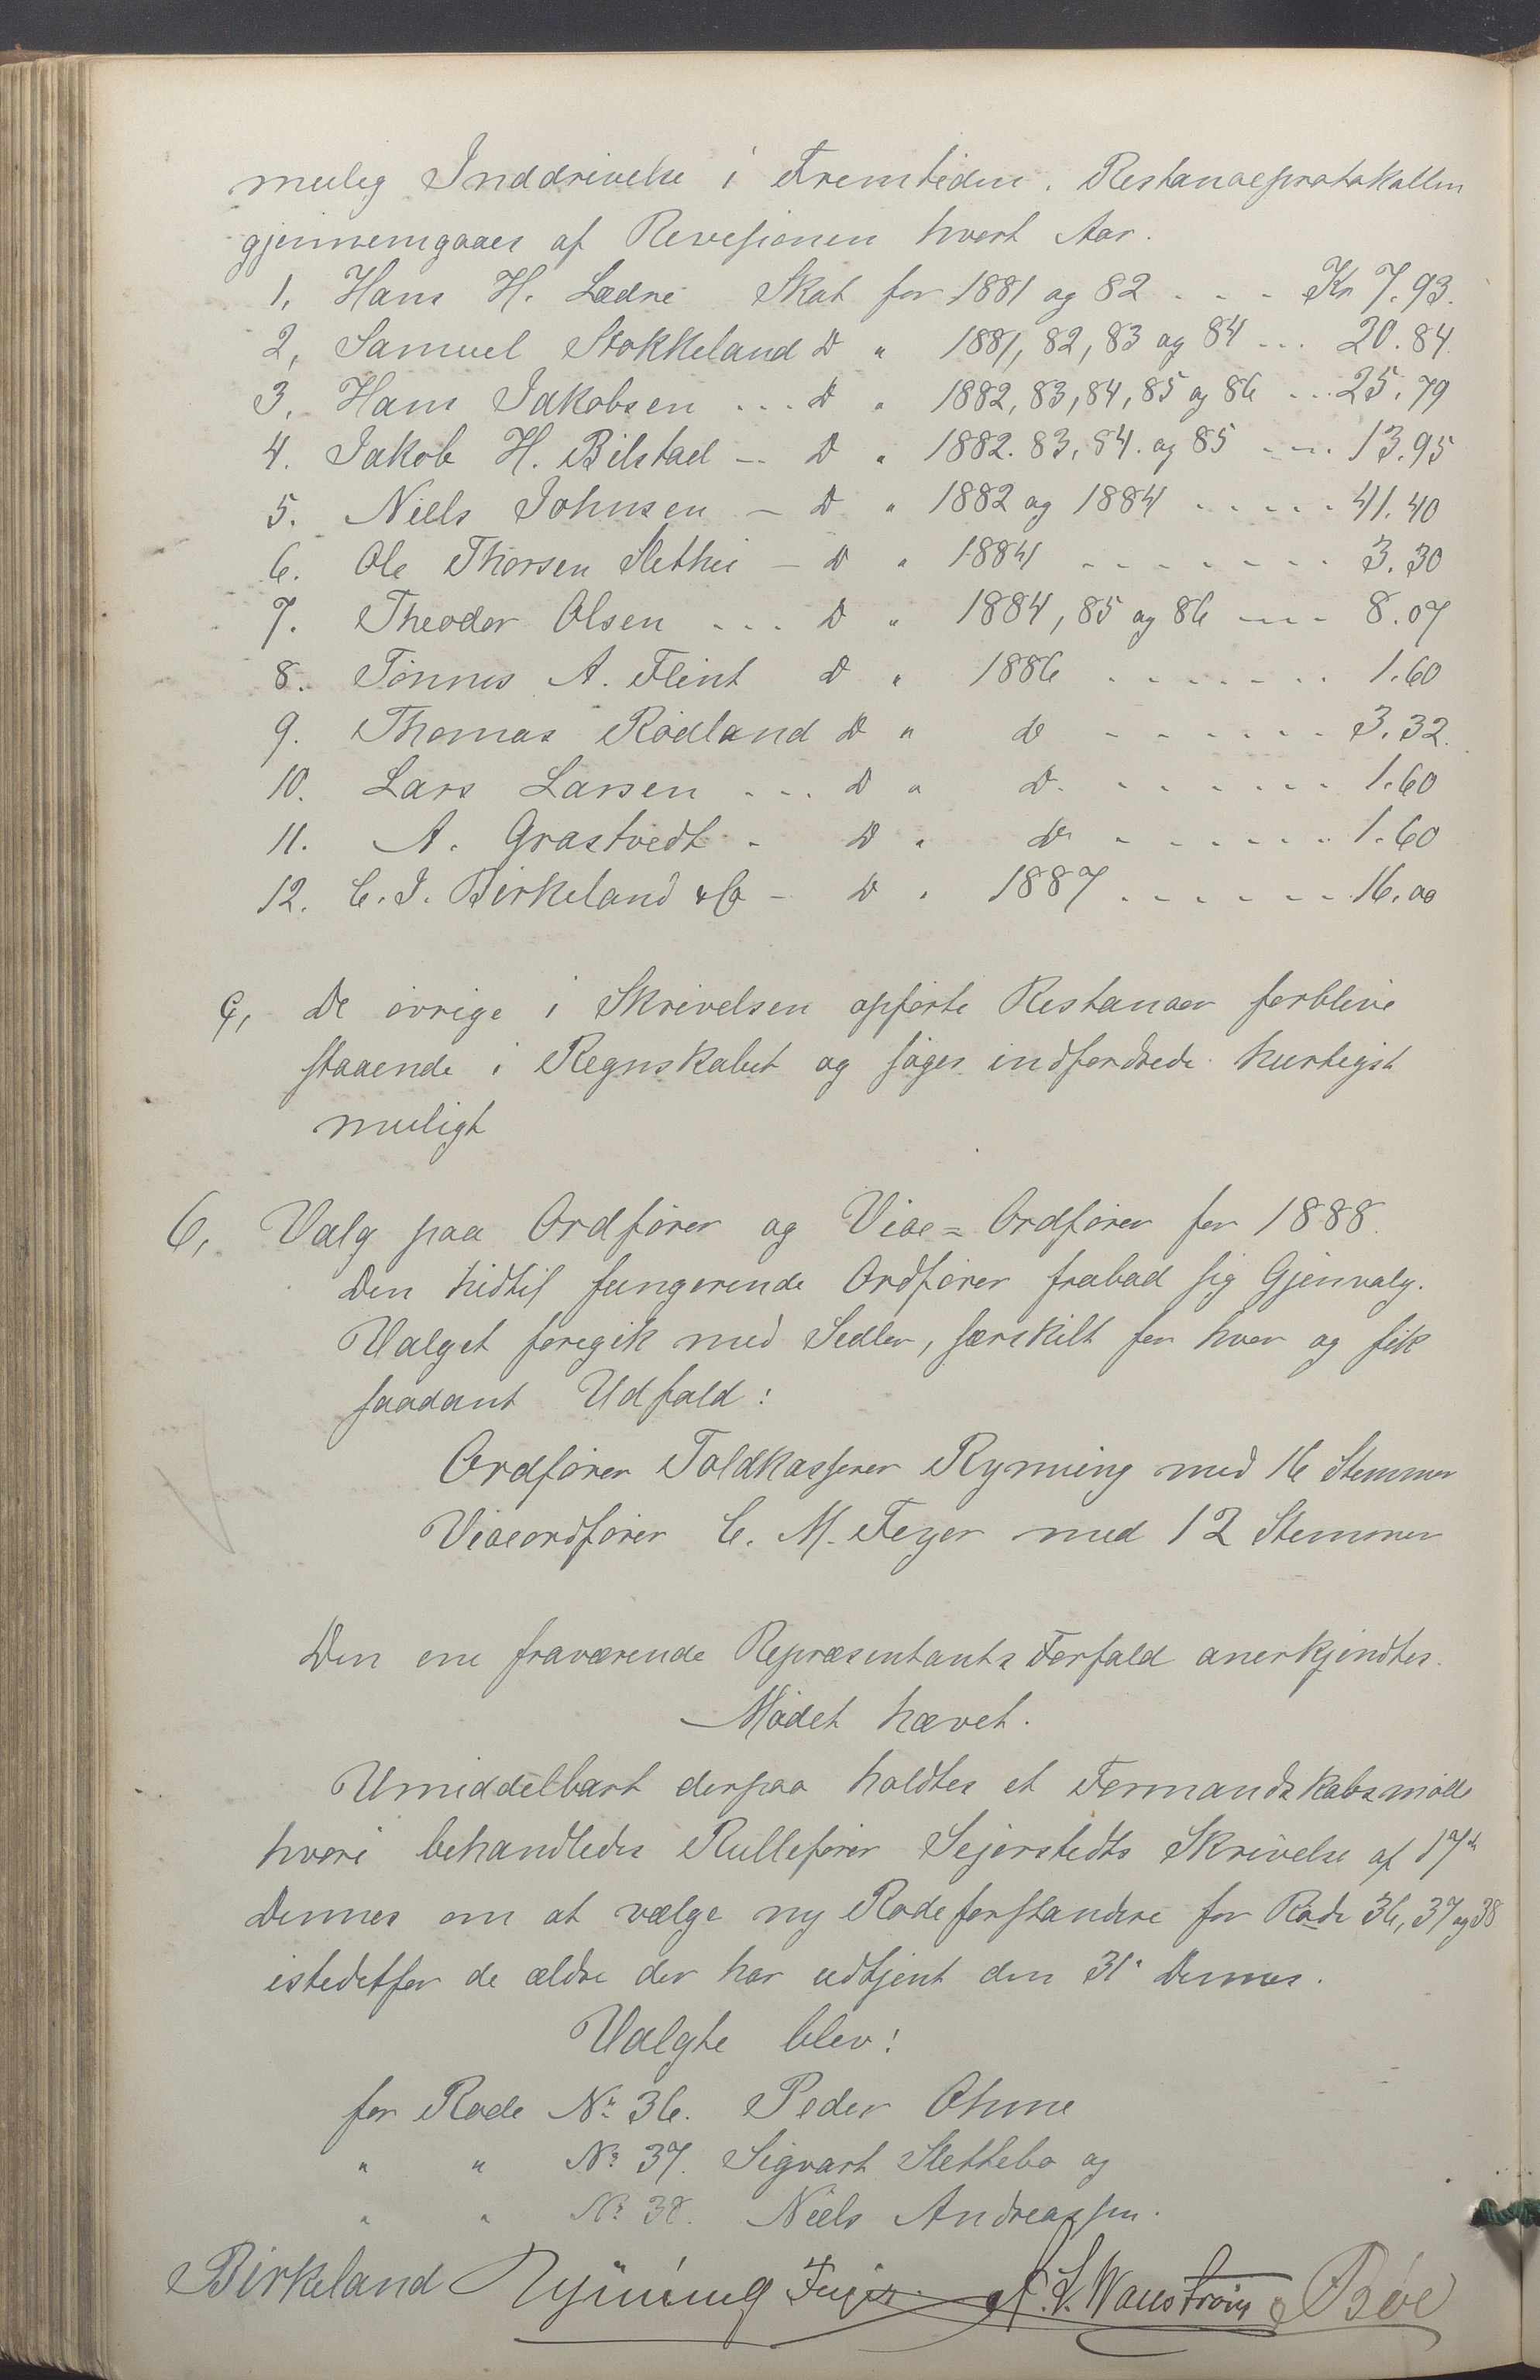 mulig Inddrivelse i Fremtiden. Restanceprotokollen
gjennemgaaes af Revisionen hvert Aar.
1, Hans H. Lædre Skat for 1881 og 82 - - - Kr 7.93.
2, Samuel Stokkeland Do " 1881, 82, 83 og 84 ... 20.84
3, Hans Jakobsen ... Do " 1882, 83, 84, 85 og 86 ... 25.79
4. Jakob H. Bilstad -- Do " 1882. 83. 84. og 85 ---- 13.95
5. Niels Johnsen - Do " 1882 og 1884 ----- 41.40
6. Ole Thorsen Slethei - Do " 1884 ------- 3.30
7. Theodor Olsen ... Do " 1884, 85 og 86 ---- 8.07
8. Tönnes A. Flint Do " 1886 ------- 1.60
9. Thomas Rödland Do " Do ------- 3.32.
10. Lars Larsen ... Do " Do ------- 1.60
11. A. Grastvedt - Do " Do ------- 1.60
12. C. I. Birkeland & Co - Do " 1887 ------- 16.00
c, De övrige i Skrivelsen opförte Restancer forblive
staaende i Regnskabet og söges indfordrede hurtigst
muligt
6, Valg paa Ordförer og Vice=Ordförer for 1888.
Den hidtil fungerende Ordförer frabad sig Gjenvalg.
Valget foregik med Sedler, særskilt for hver og fik
saadant Udfald:
Ordförer Toldkasserer Rynning med 16 Stemmer
Viceordförer C. M. Feyer med 12 Stemmer
Den ene fraværende Repræsentants Forfald anerkjendtes.
Mödet hævet.
Umiddelbart derpaa holdtes et Formandskabsmöde
hvori behandledes Rulleförer Sejerstedts Skrivelse af 17de
Dennes om at vælge ny Rodeforstandere for Rode 36, 37 og 38
istedetfor de ældre der har udtjent den 31. Dennes.
Valgte blev:
for Rode No 36. Peder Ohme
" " No 37. Sigvart Slettebö og
" " No 38. Niels Andreassen.
Birkeland Rynning Feyer A. L. Wanström Böe